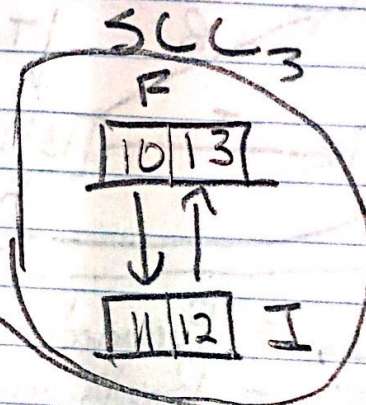 SCC3
F
10 13
11 12 I